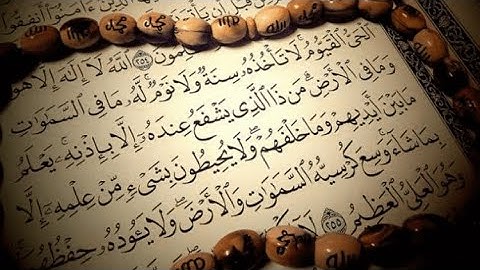 ءَامَنُوٓا۟ أَنفِقُوا۟
قَبْلِ أَن
٢٥٤ ٱللَّهُ لَآ إِلَٰهَ إِلَّا هُوَ
ٱلْحَىُّ ٱلْقَيُّومُ لَا تَأْخُذُهُۥ سِنَةٌ وَلَا نَوْمٌ لَّهُۥ مَا فِى ٱلسَّمَٰوَٰتِ
وَمَا فِى ٱلْأَرْضِ مَن ذَا ٱلَّذِى يَشْفَعُ عِندَهُۥٓ إِلَّا بِإِذْنِهِۦ يَعْلَمُ
مَا بَيْنَ أَيْدِيهِمْ وَمَا خَلْفَهُمْ وَلَا يُحِيطُونَ بِشَىْءٍ مِّنْ عِلْمِهِۦٓ إِلَّا
بِمَا شَآءَ وَسِعَ كُرْسِيُّهُ ٱلسَّمَٰوَٰتِ وَٱلْأَرْضَ وَلَا يَـُٔودُهُۥ حِفْظُهُمَا
وَهُوَ ٱلْعَلِىُّ ٱلْعَظِيمُ ٢٥٥ لَآ